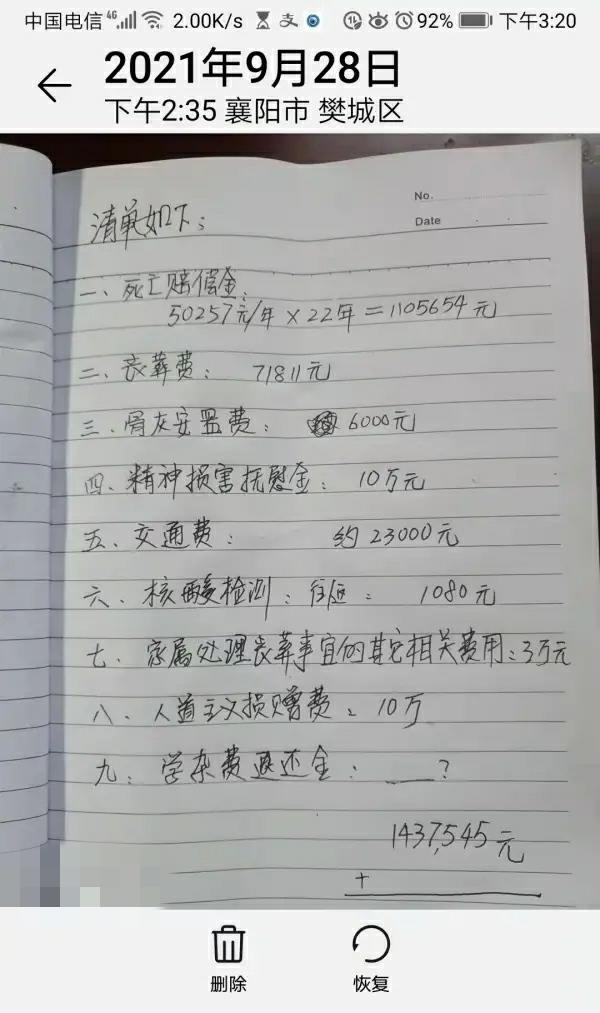 中国电信 4G 2.00K/s 支 92% 下午3:20
2021年9月28日
下午2:35 襄阳市 樊城区
No.
Date
清单如下：
一、死亡赔偿金：
50257元/年 × 22年 = 1105654 元
二、丧葬费： 71811元
三、骨灰安置费： 6000元
四、精神损害抚慰金： 10万元
五、交通费： 约 23000元
六、核酸检测：往返： 1080元
七、家属处理丧葬事宜的其它相关费用：3万元
八、人道主义损赠费： 10万
九、学杂费退还金： ___？
1437,545元
+
删除 恢复